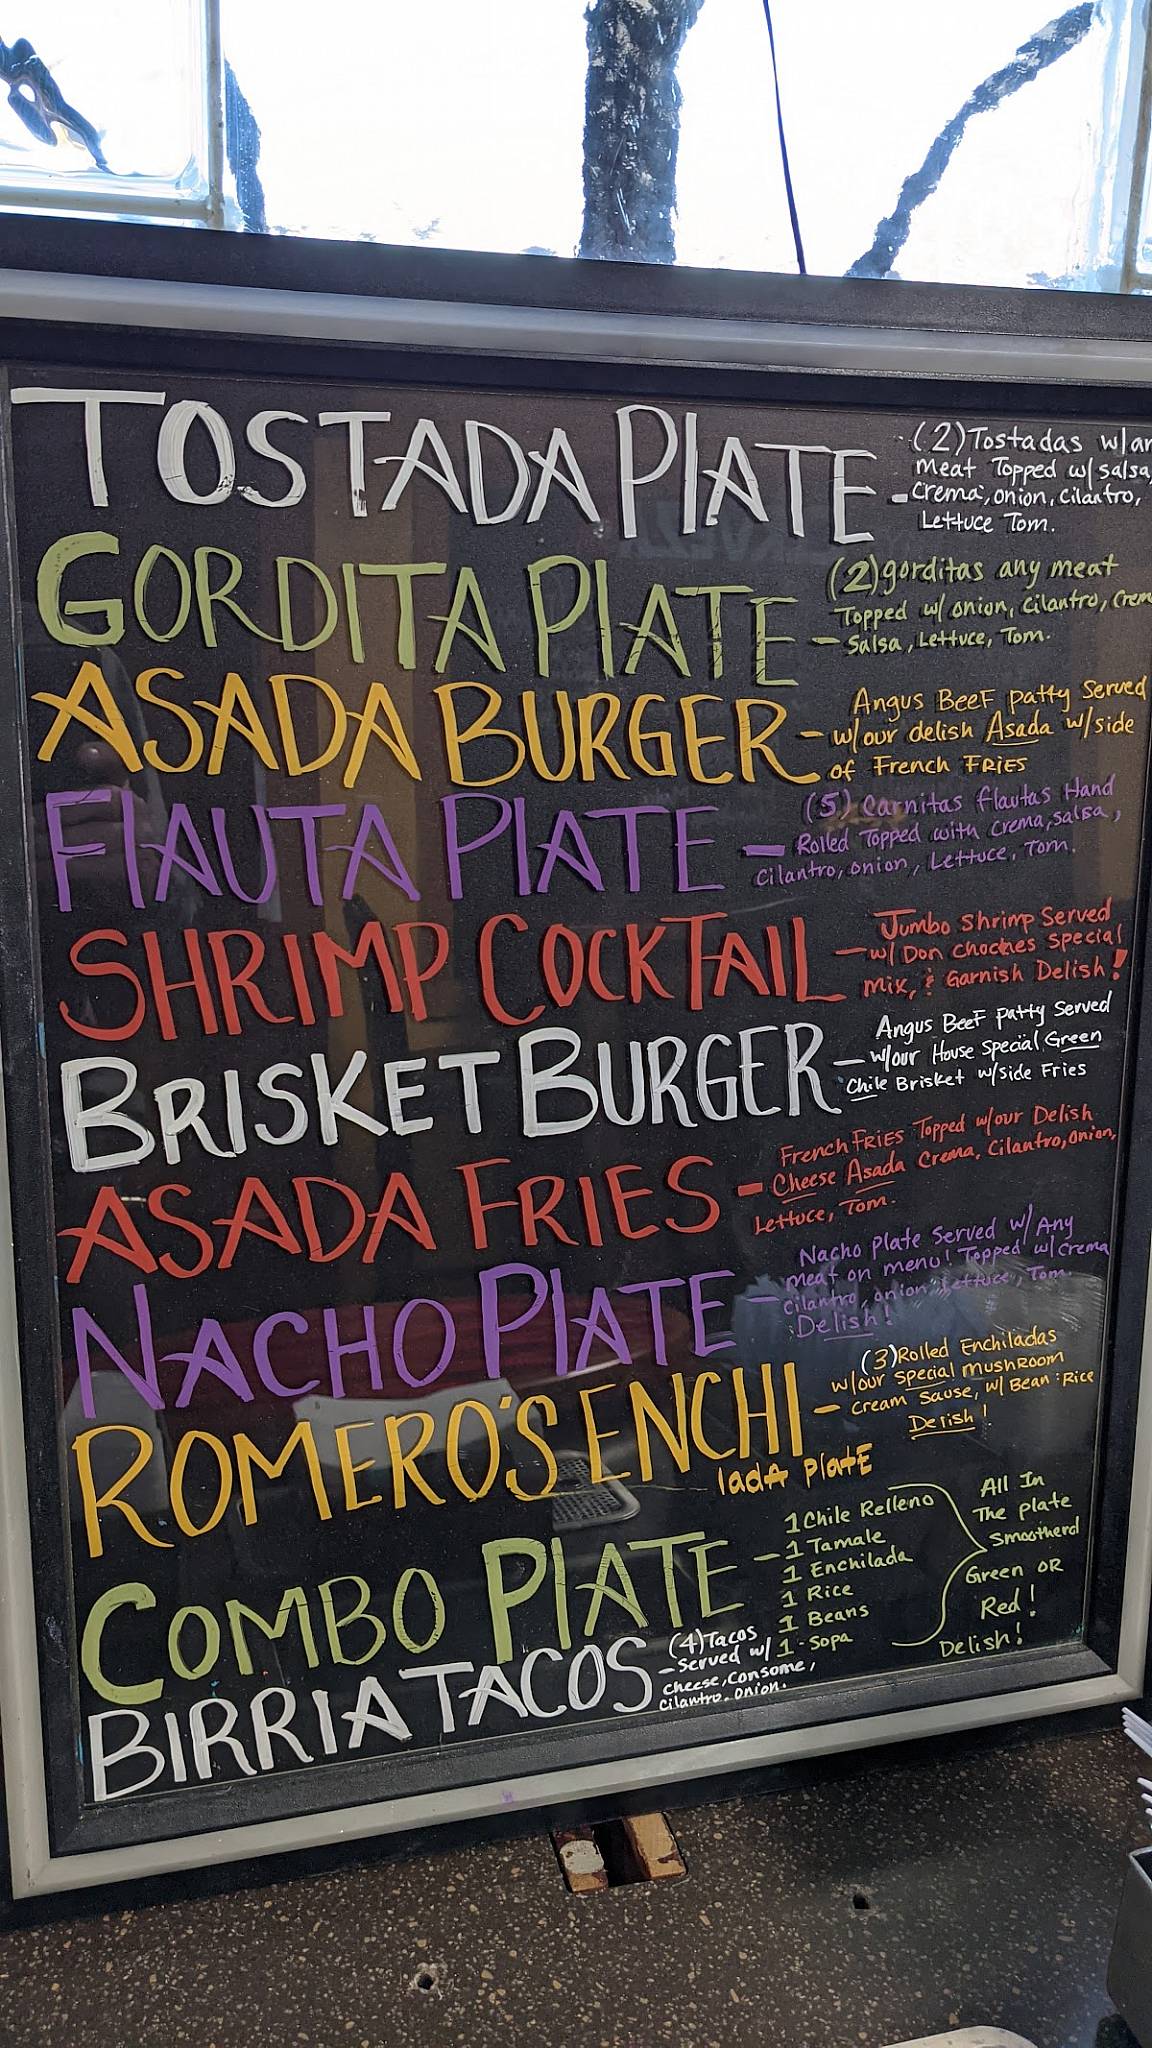 TOSTADA PLATE -
(2) Tostadas w/an
meat Topped w/ salsa,
Crema, onion, cilantro,
Lettuce Tom.
GORDITA PLATE -
(2) gorditas any meat
Topped w/ onion, cilantro, crem
Salsa, Lettuce, Tom.
ASADA BURGER -
Angus BeeF patty Served
w/our delish Asada w/side
of French FRIES
FLAUTA PLATE -
(5) Carnitas flautas Hand
Rolled Topped with crema, salsa,
cilantro, onion, Lettuce, Tom.
SHRIMP COCKTAIL -
Jumbo Shrimp Served
w/ Don Choches Special
mix, & Garnish Delish!
BRISKET BURGER -
Angus BeeF patty Served
w/our House Special Green
Chile Brisket w/side Fries
ASADA FRIES -
French FRIES Topped w/our Delish
Cheese Asada Crema, Cilantro, onion,
Lettuce, Tom.
NACHO PLATE -
Nacho plate Served w/ Any
meat on menu! Topped w/ crema
cilantro, onion, Lettuce, Tom.
Delish!
ROMERO'S ENCHI
ladA PlatE -
(3) Rolled Enchiladas
w/our special mushRoom
cream sause, w/ Bean : Rice
Delish!
COMBO PLATE -
1 Chile Relleno
1 Tamale
1 Enchilada
1 Rice
1 Beans
1 - Sopa
All In
The plate
Smootherd
Green OR
Red!
Delish!
BIRRIA TACOS -
(4) Tacos
Served w/
cheese, consome,
cilantro, onion.